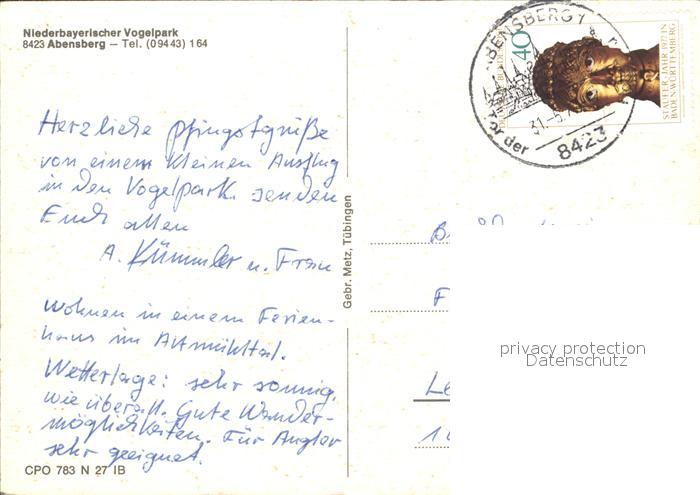 Niederbayerischer Vogelpark
8423 Abensberg – Tel. (09443) 164
Herzliche Pfingstgrüße
von einem kleinen Ausflug
in den Vogelpark senden
Euch allen
A. Kümmler u. Frau
Wohnen in einem Ferien-
haus im Altmühltal.
Wetterlage: sehr sonnig,
wie überall. Gute Wander-
möglichkeiten. Für Angler
sehr geeignet.
CPO 783 N 27 IB
Gebr. Metz, Tübingen
ABENSBERG 1
31.-5.
8423
40
STAUFER-JAHR 1977 IN
BADEN-WÜRTTEMBERG
privacy protection
Datenschutz